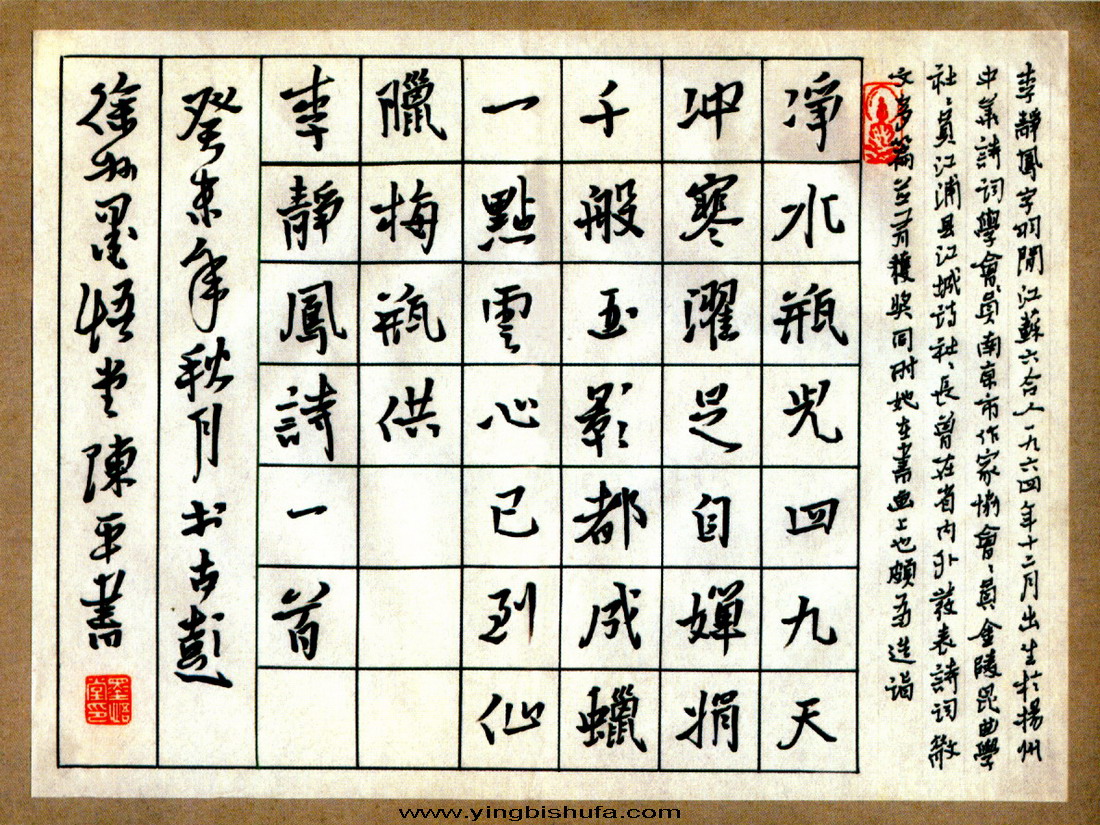 李靜鳳字羽閒江蘇六合人一九六四年十二月出生於揚州
中華詩詞學會會員南京市作家協會會員金陵昆曲學
社社員江浦县江城诗社社長曾在省内外發表詩詞散
文多篇並並有獲奖同时她在書画上也頗有造詣
淨水瓶光四九天
冲寒濯足自嬋娟
千般玉影都成蠟
一點雲心已到仙
臘梅瓶供
李靜鳳詩一首
癸未年秋月书古彭
徐州墨悟堂陳平書
墨悟堂印
www.yingbishufa.com